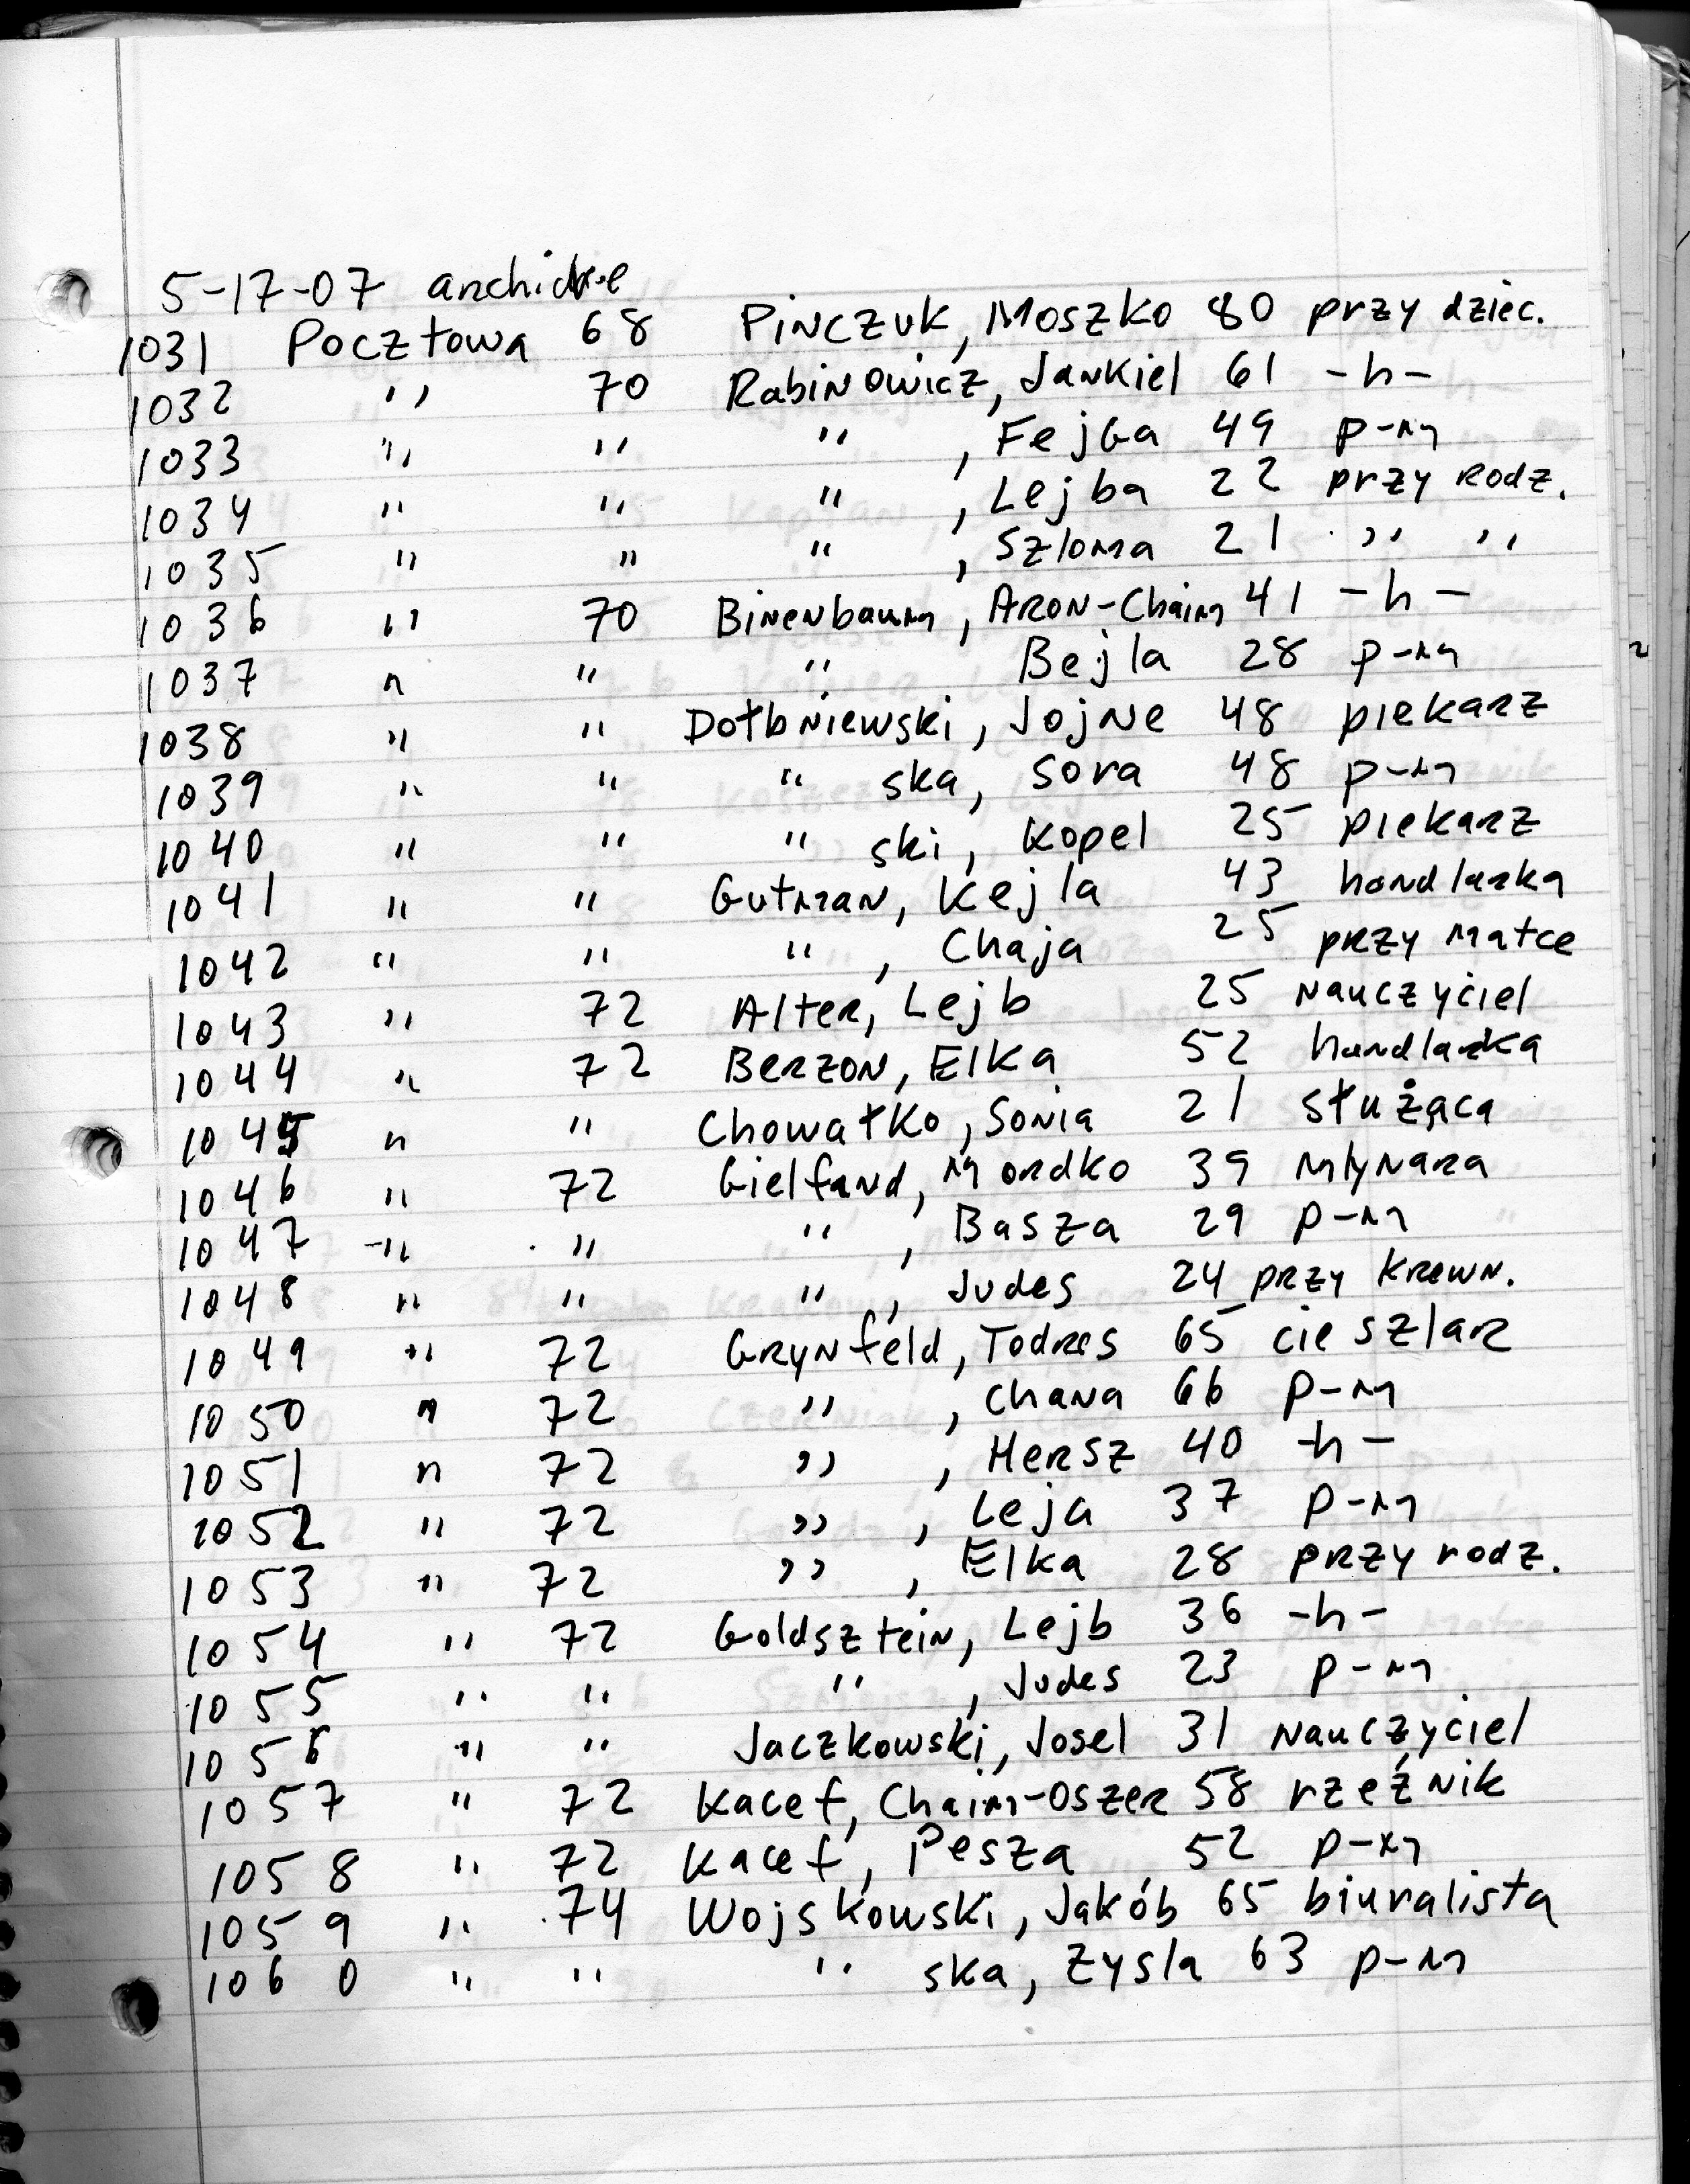 5-17-07 archive
1031 Pocztowa 68 Pinczuk, Moszko 80 przy dziec.
1032 " 70 Rabinowicz, Jankiel 61 -h-
1033 " " " , Fejga 49 p-m
1034 " " " , Lejba 22 przy rodz.
1035 " " " , Szloma 21 " "
1036 " 70 Binenbaum, Aron-Chaim 41 -h-
1037 " " " Bejla 28 p-m
1038 " " Dołbniewski, Jojne 48 piekarz
1039 " " " ska, Sora 48 p-m
1040 " " " ski, Kopel 25 piekarz
1041 " " Gutman, Kejla 43 handlarka
1042 " " " , Chaja 25 przy matce
1043 " 72 Alter, Lejb 25 nauczyciel
1044 " 72 Berzon, Elka 52 handlarka
1045 " " Chowałko, Sonia 21 służąca
1046 " 72 Gielfand, Mordko 39 młynarz
1047 " " " , Basza 29 p-m
1048 " " " , Judes 24 przy krewn.
1049 " 72 Grynfeld, Todres 65 cieszlar
1050 " 72 " , Chana 66 p-m
1051 " 72 " , Hersz 40 -h-
1052 " 72 " , Leja 37 p-m
1053 " 72 " , Elka 28 przy rodz.
1054 " 72 Goldsztein, Lejb 36 -h-
1055 " " " , Judes 23 p-m
1056 " " Jaczkowski, Josel 31 nauczyciel
1057 " 72 Kacef, Chaim-Oszer 58 rzeźnik
1058 " 72 Kacef, Pesza 52 p-m
1059 " 74 Wojskowski, Jakób 65 biuralista
1060 " " " ska, Zysla 63 p-m